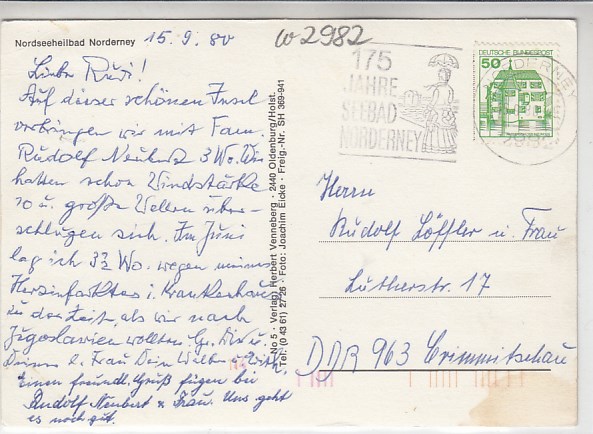 Nordseeheilbad Norderney
15.9.80
w 2982
175
JAHRE
SEEBAD
NORDERNEY
DEUTSCHE BUNDESPOST
50
Liebe Rudi!
Auf dieser schönen Insel
verbringen wir mit Fam.
Rudolf Neubert 3 Wo. Wir
hatten schon Windstärke
10 u. große Wellen über-
schlugen sich. Im Juni
lag ich 3½ Wo. wegen meines
Herzinfarktes i. Krankenhaus
zu der Zeit, als wir nach
Jugoslavien wollten.
Einen freundl. Gruß fügen bei
Rudolf Neubert & Frau. Uns geht
es noch gut.
No 5 · Verlag Herbert Venneberg · 2440 Oldenburg/Holst.
Tel. (0 43 61) 27 26 · Foto: Joachim Eicke · Freig.-Nr. SH 369-941
Herrn
Rudolf Löffler u. Frau
Lutherstr. 17
DDR 963 Crimmitschau